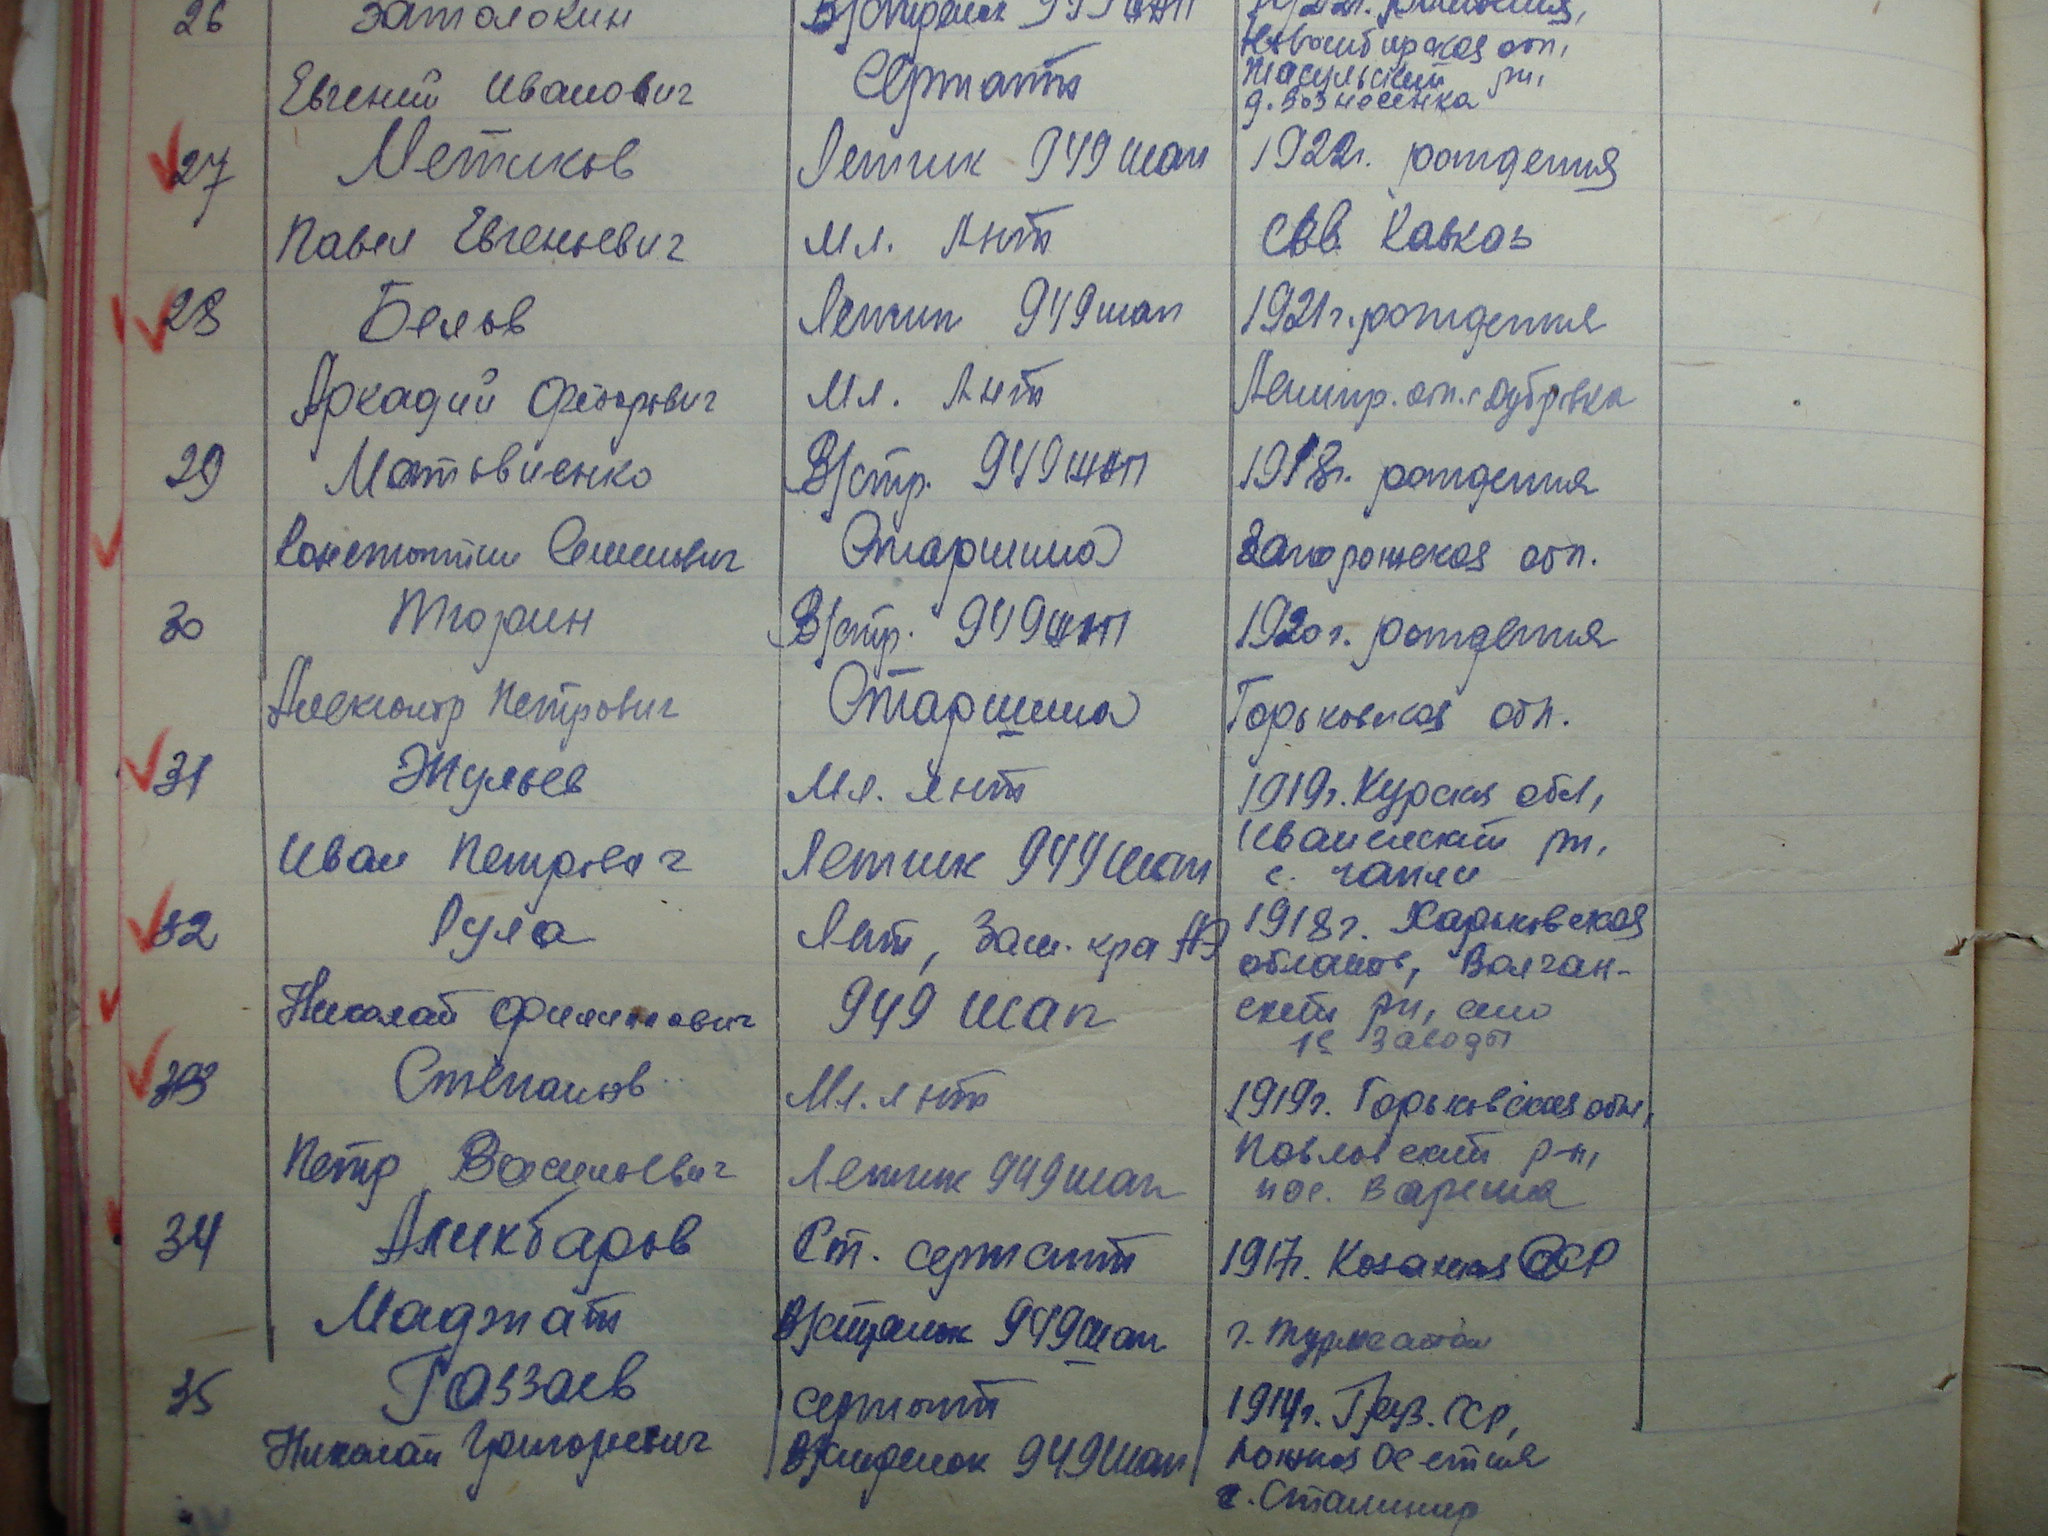 26 Затолокин В/стрелок 949 шап 1922г. рождения,
Новосибирская обл,
Евгений Иванович Сержант Тисульский рн,
д. Вознесенка
27 Метиков Летчик 949 шап 1922г. рождения
Павел Евгеньевич Мл. Лнт Сев. Кавказ
28 Белов Летчик 949 шап 1921г. рождения
Аркадий Федорович Мл. Лнт Ленингр. обл. с Дубровка
29 Матвиенко В/стр. 949 шап 1918г. рождения
Константин Семенович Старшина Запорожская обл.
30 Тюрин В/стр. 949 шап 1920г. рождения
Александр Петрович Старшина Горьковская обл.
31 Жульев Мл. лнт 1919г. Курская обл,
Иван Петрович Летчик 949 шап рн,
с. Гапли
32 Рула Лнт, Зам. к-ра АЭ 1918г. Харьковская
область, Волчан-
Николай Филиппович 949 шап ский рн, село
1е Заводы
33 Степанов Мл. лнт 1919г. Горьковская обл,
Петр Васильевич Летчик 949 шап Павловский р-н,
пос. Ворсма
34 Аликбаров Ст. сержант 1917г. Казахская ССР
Маджат В/стрелок 949 шап г. Туркестан
35 Газзаев сержант 1914г. Груз. ССР,
Николай Григорьевич В/стрелок 949 шап Южная Осетия
г. Сталинир